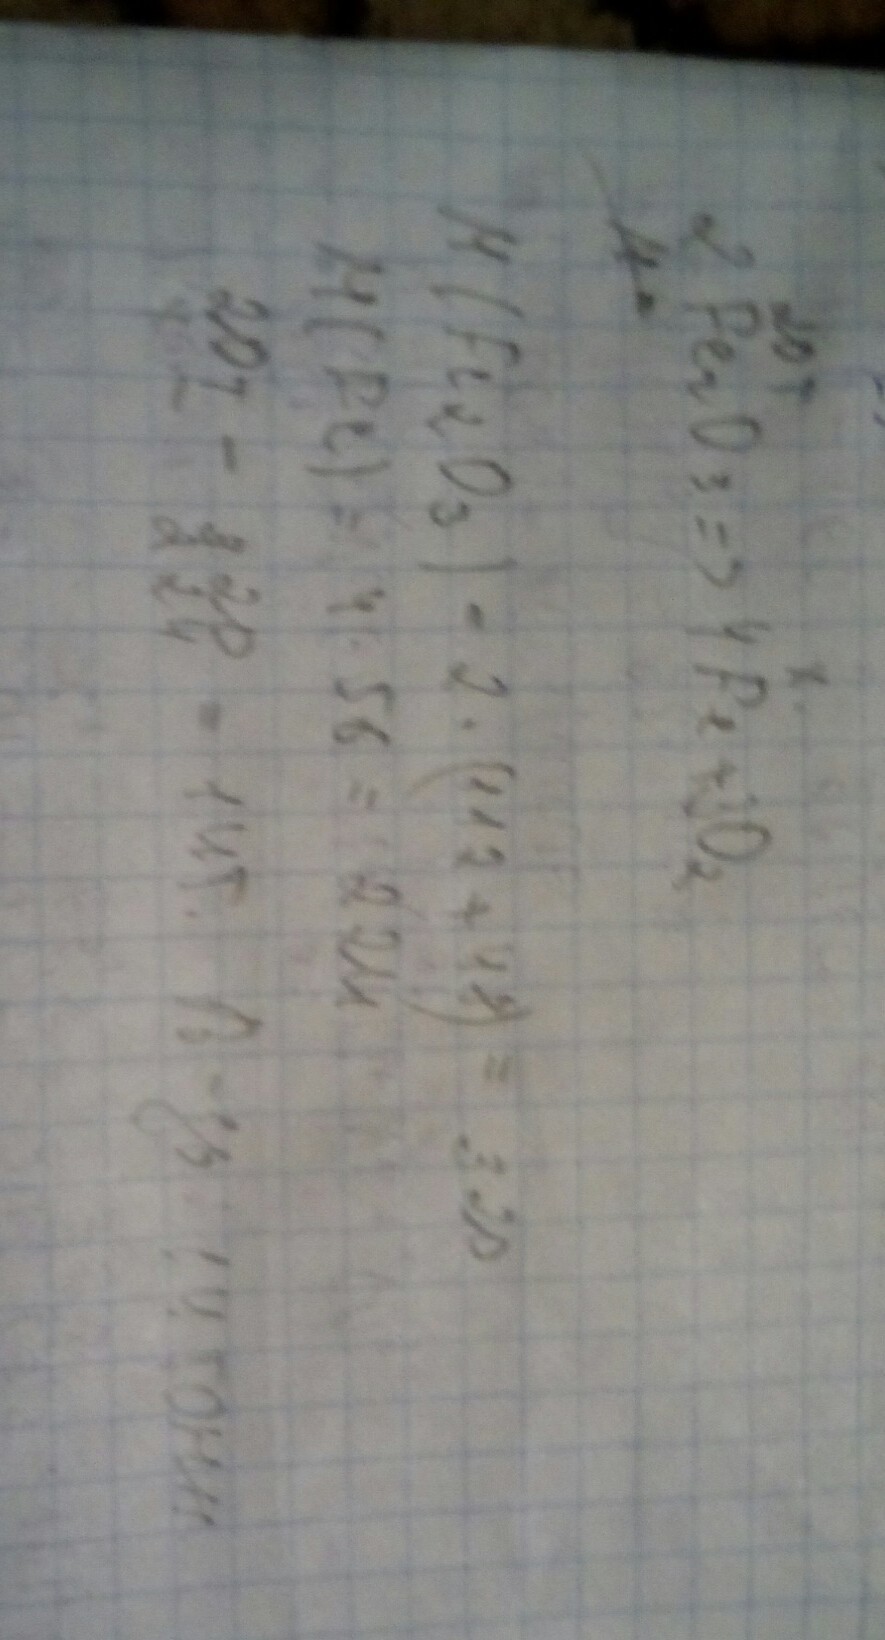 20т x
2Fe₂O₃ => 4Fe + 3O₂
M(Fe₂O₃) = 2·(112+48) = 320
M(Fe) = 4·56 = 224
20т - 320
x - 224 = 14т.